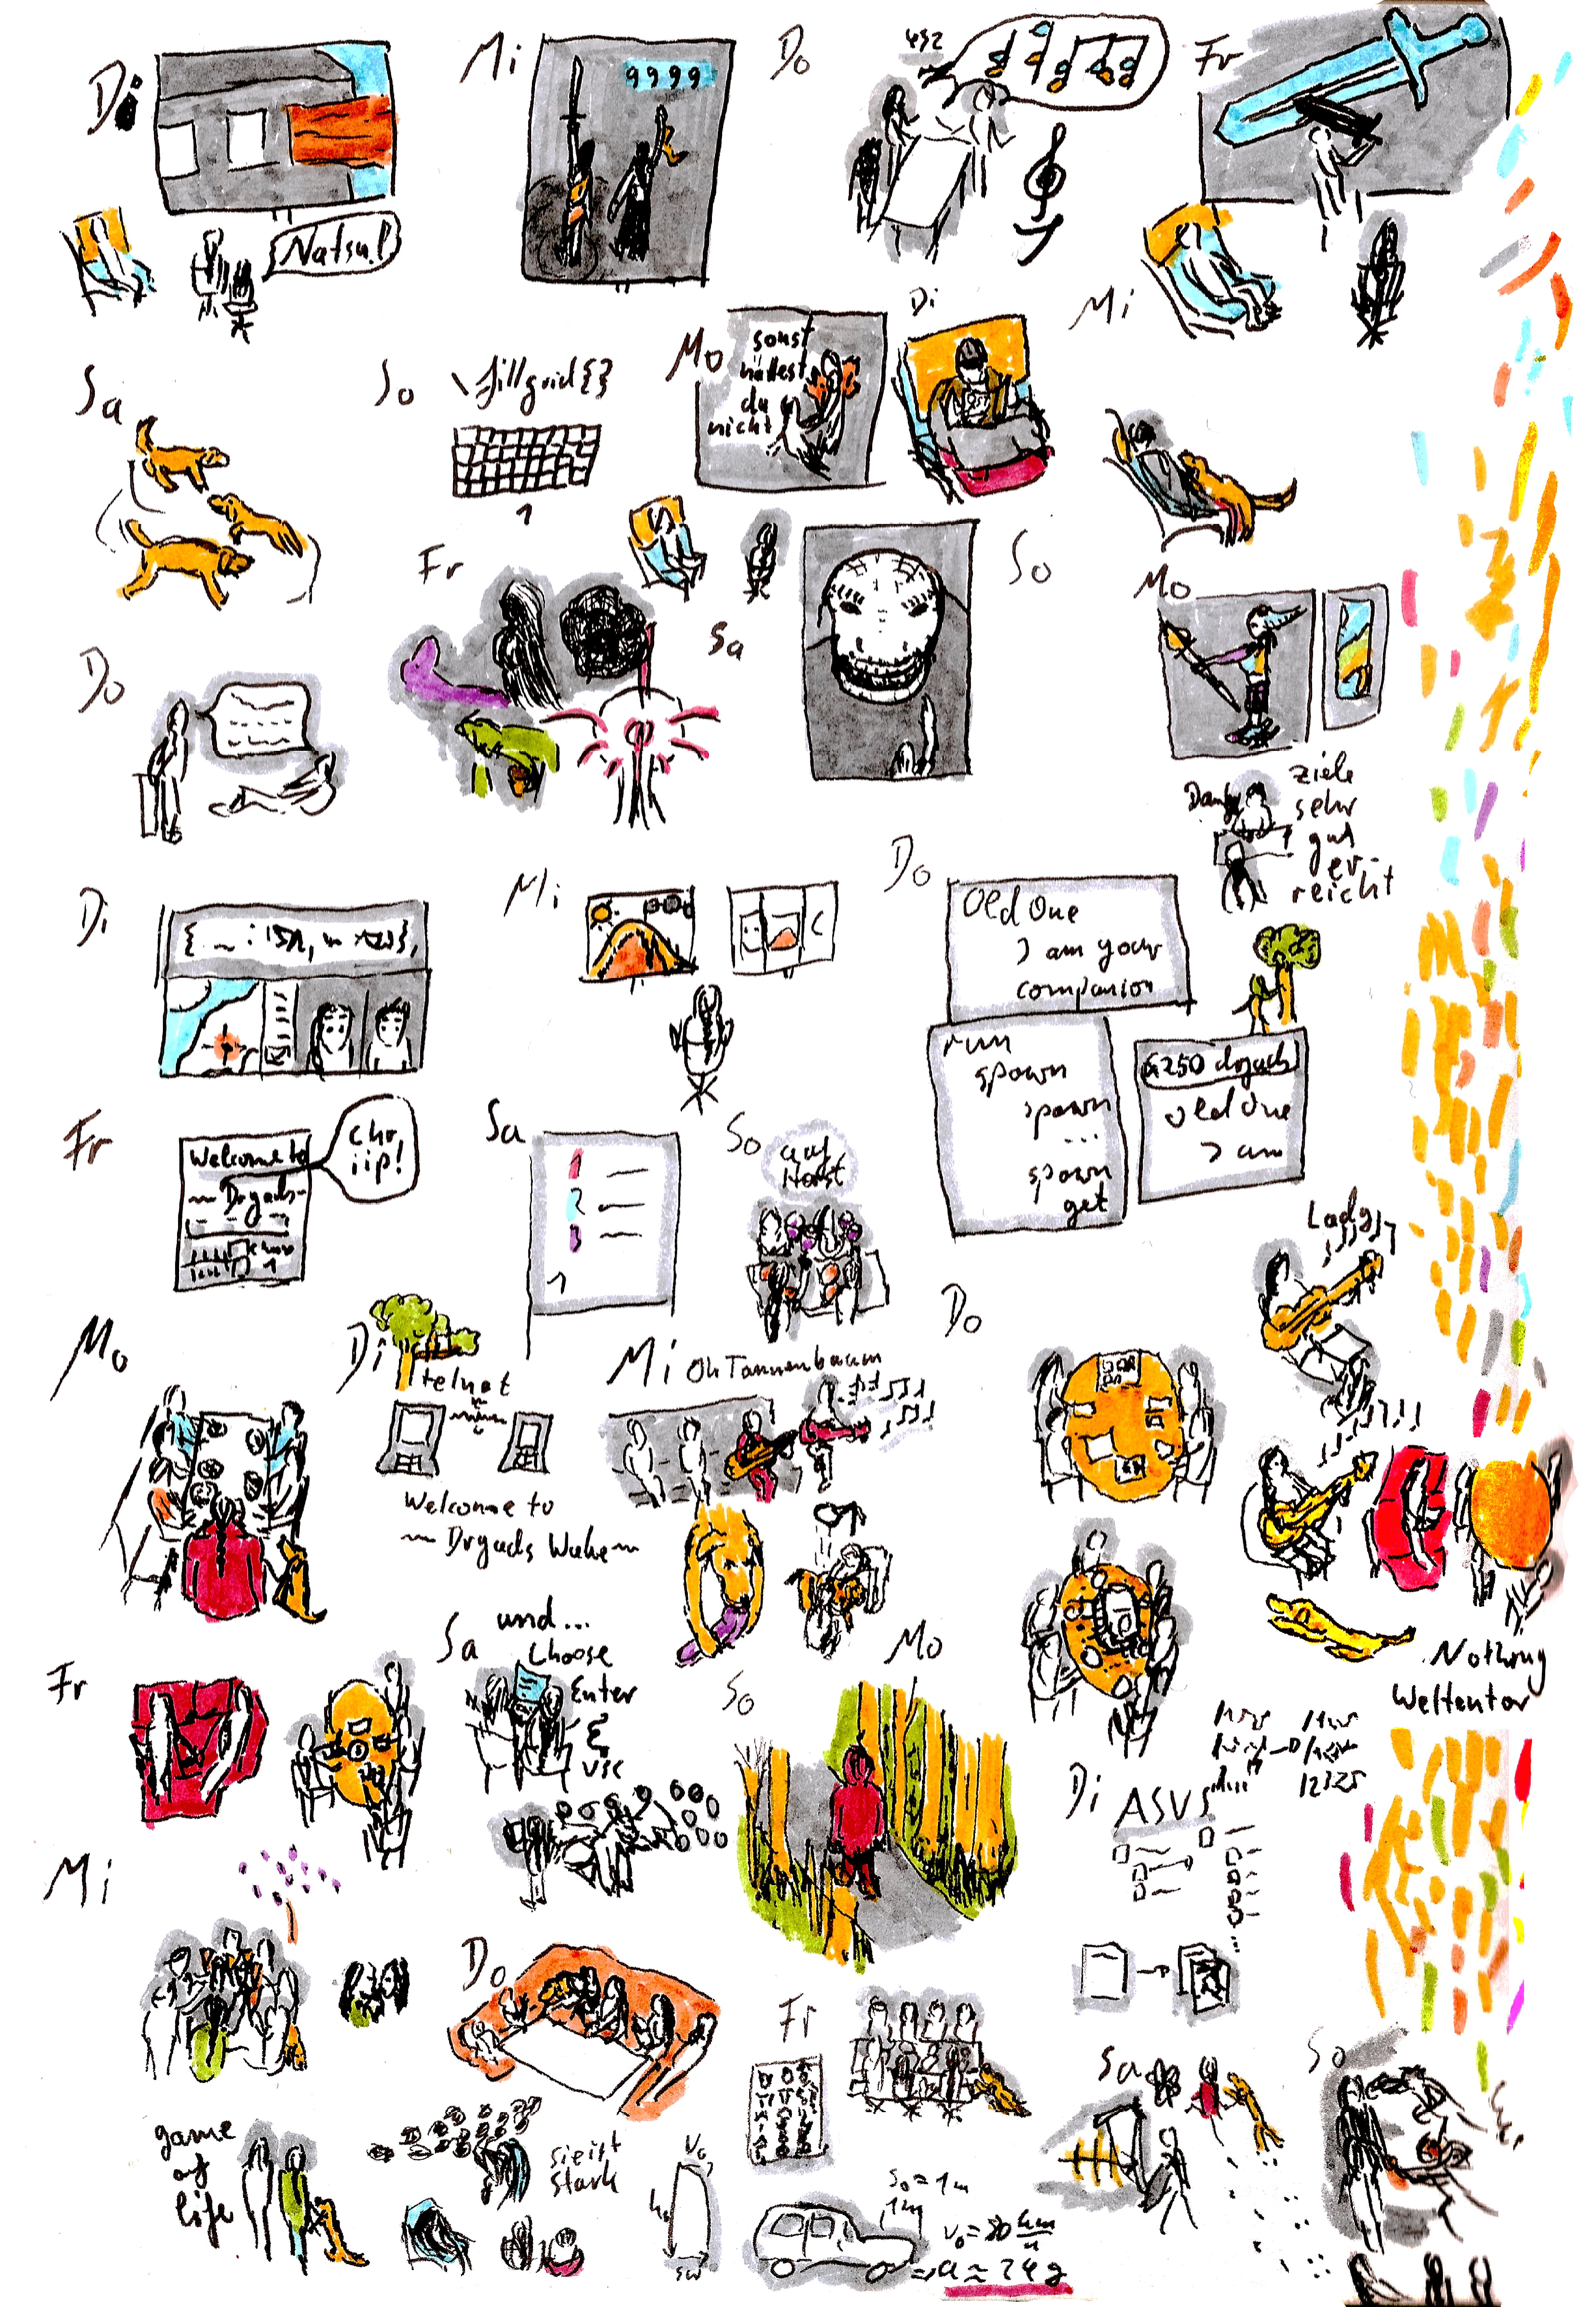 Di
Mi
9999
Do
432
Fr
Natsu!
Sa
So
\fillgrid{}
1
Mo
sonst
hättest
du
nicht
Di
Mi
Do
Fr
Sa
So
Mo
Danke
ziele
sehr
gut
er-
reicht
Di
Mi
Do
Old One
I am your
companion
run
spawn
spawn
...
spawn
get
&250 dryads
old One
I am
Fr
Welcome to
~ Dryads
1
chr
iip!
Sa
1
2
3
1
So
auf
Horst
Mo
Di
telnet
Welcome to
~ Dryads Wake ~
Mi Oh Tannenbaum
Do
Lady
Nothing
Weltentor
Fr
Sa
und...
Choose
Enter
&
vic
So
Mo
Di
ASVS
12325
Mi
game
of
life
Do
sie ist
stark
Fr
v₀
s₀ = 1m
1m
v₀ = 80 km/h
⇒ a ≈ 24 g
Sa
So